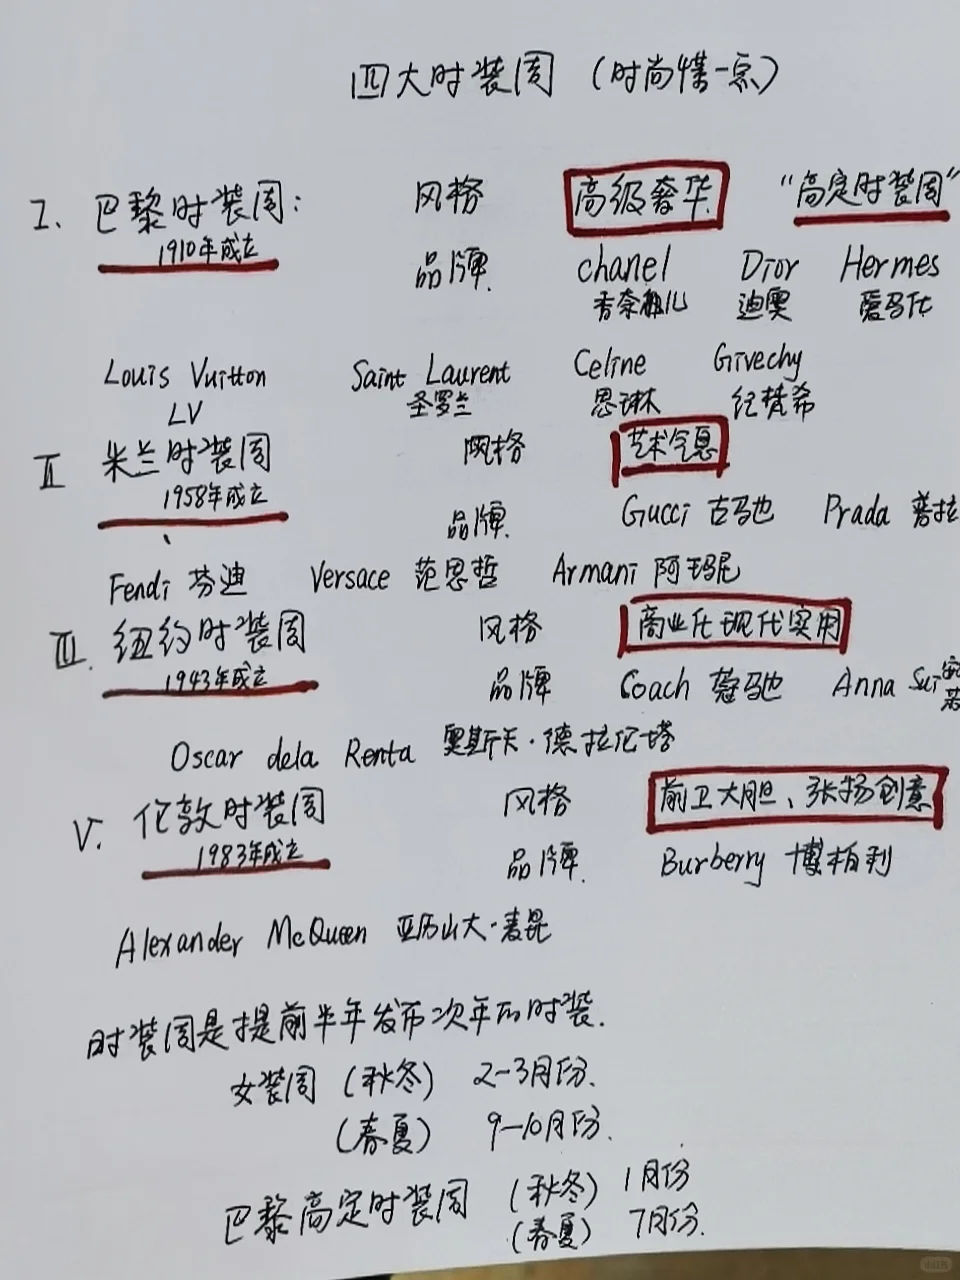 四大时装周 (时尚懂一点)
I. 巴黎时装周: 风格 高级奢华 "高定时装周"
1910年成立
品牌 chanel Dior Hermes
香奈儿 迪奥 爱马仕
Louis Vuitton Saint Laurent Celine Givechy
LV 圣罗兰 思琳 纪梵希
II 米兰时装周 风格 艺术气息
1958年成立
品牌 Gucci 古驰 Prada 普拉
Fendi 芬迪 Versace 范思哲 Armani 阿玛尼
III. 纽约时装周 风格 商业化现代实用
1943年成立
品牌 Coach 蔻驰 Anna Sui
Oscar dela Renta 奥斯卡·德拉伦塔
V. 伦敦时装周 风格 前卫大胆、张扬创意
1983年成立
品牌 Burberry 博柏利
Alexander McQueen 亚历山大·麦昆
时装周是提前半年发布次年的时装.
女装周 (秋冬) 2-3月份.
(春夏) 9-10月份.
巴黎高定时装周 (秋冬) 1月份
(春夏) 7月份.